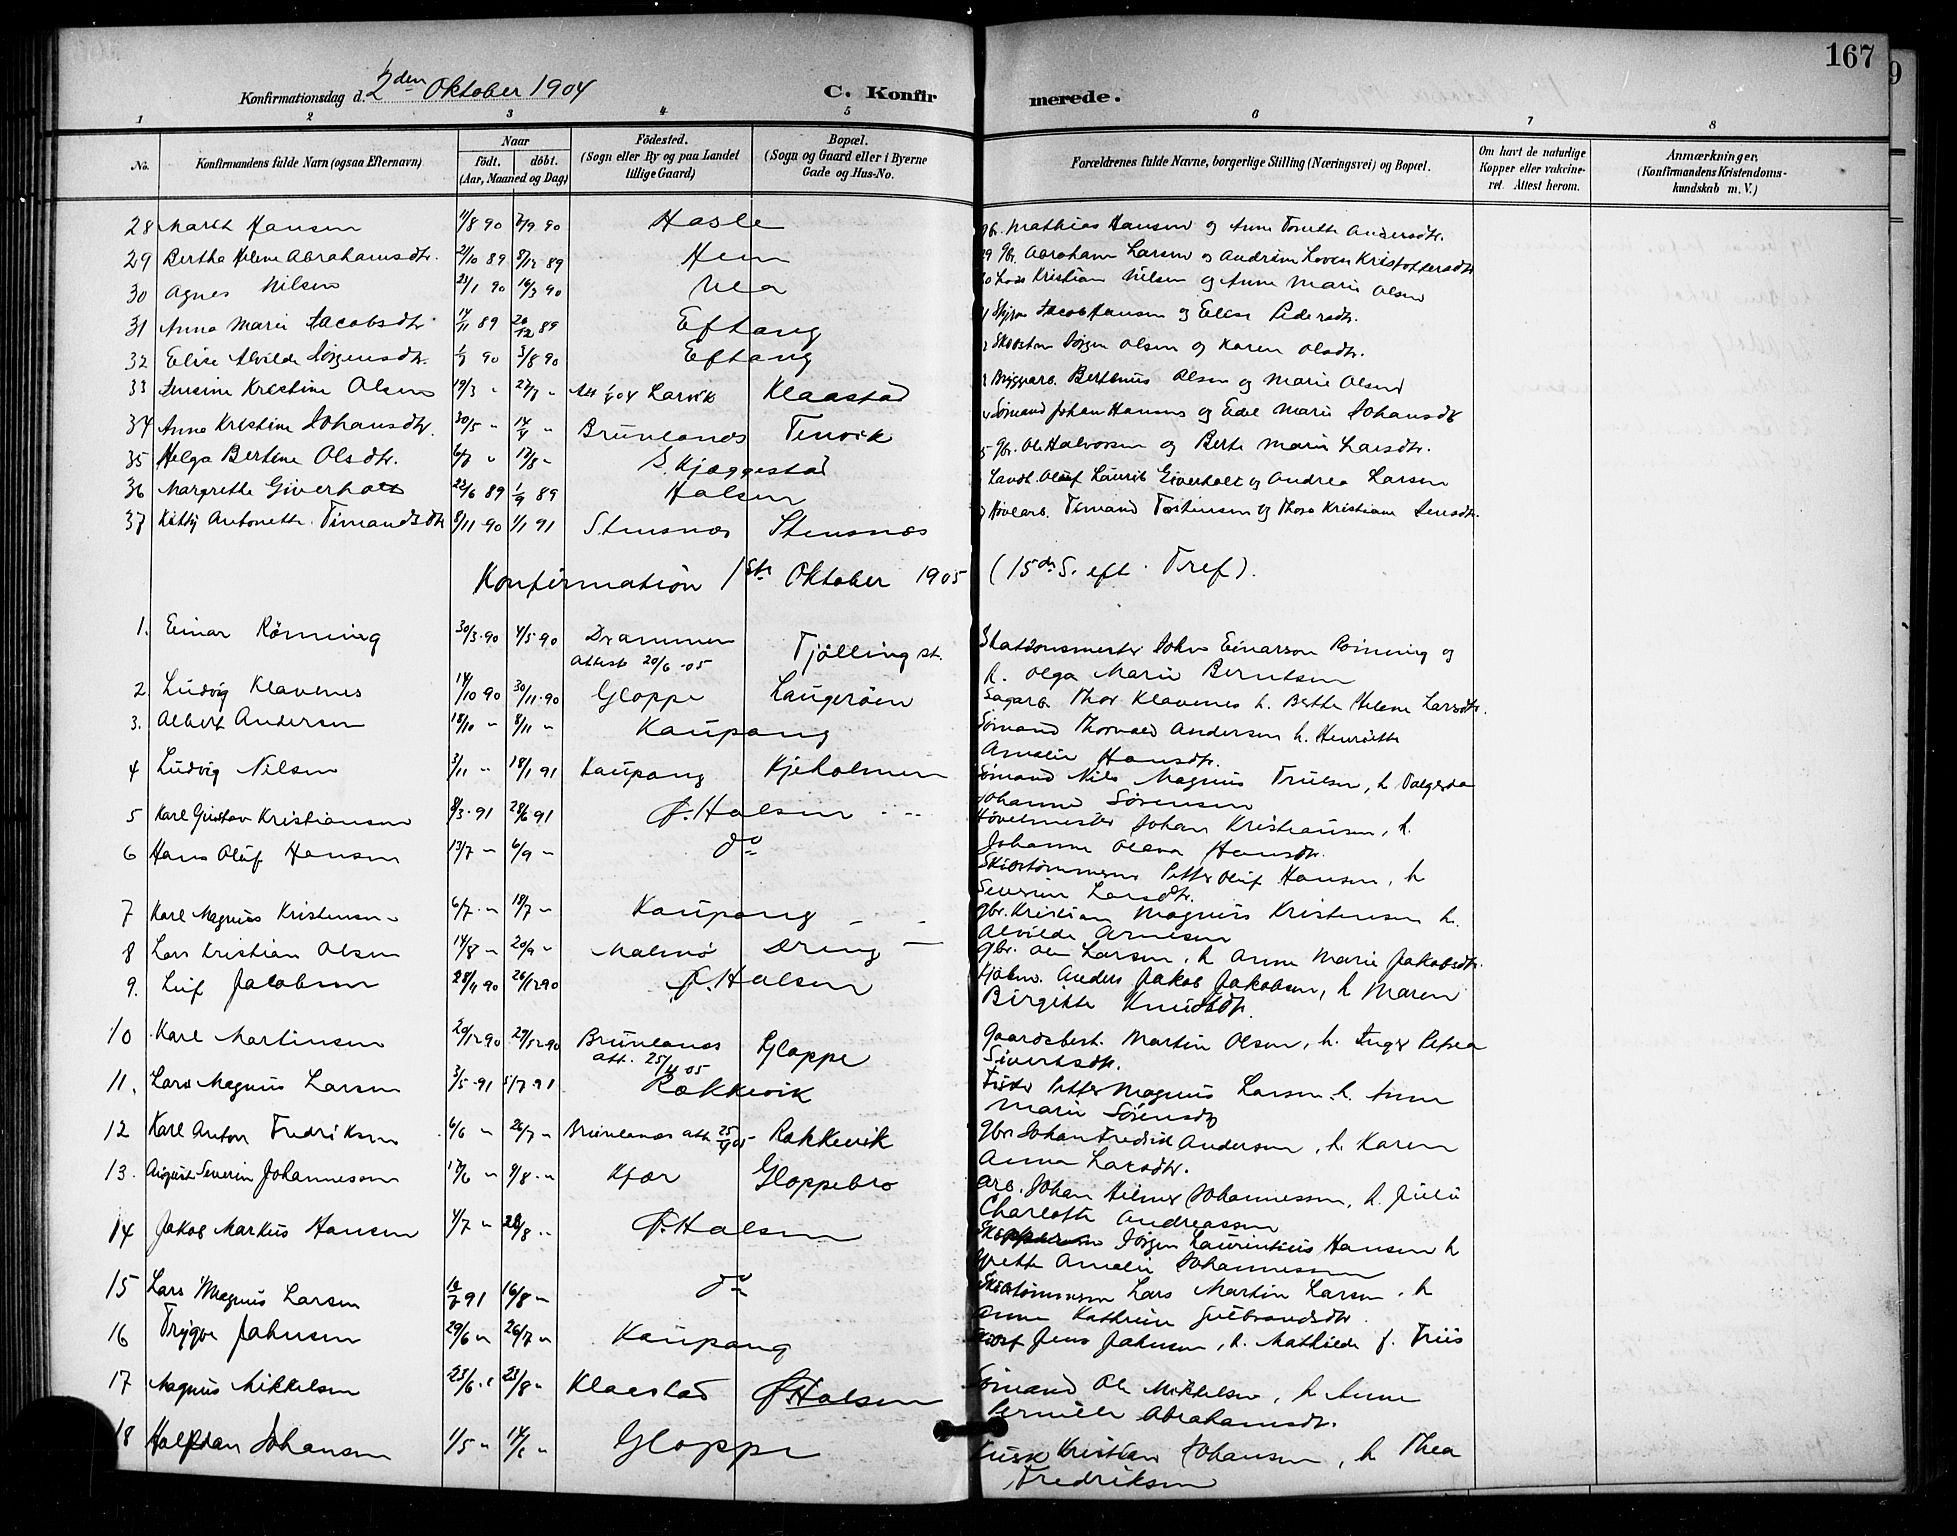 167
Konfirmationsdag d. 2den Oktober 1904 C. Konfirmerede.
1 2 3 4 5 6 7 8
No. Konfirmandens fulde Navn (ogsaa Efternavn) Naar födt. döbt. (Aar, Maaned og Dag) Födested. (Sogn eller By og paa Landet tillige Gaard) Bopæl. (Sogn og Gaard eller i Byerne Gade og Hus-No. Forældrenes fulde Navne, borgerlige Stilling (Næringsvei) og Bopæl. Om havt de naturlige Kopper eller vaccineret. Attest herom. Anmærkninger. (Konfirmandens Kristendomskundskab m. V.)
28 Marit Hansen 11/8 90 7/9 90 Hasle Gbr. Mathias Hansen og Anne Tonette Andersdtr.
29 Bertha Helene Abrahamsdtr. 21/10 89 8/12 89 Hem Gbr. Abraham Larsen og Andrine Lovise Kristoffersdtr
30 Agnes Nilsen 23/1 90 16/3 90 Ula Lods Kristian Nilsen og Anne Marie Olsen
31 Anna Marie Jacobsdtr 14/11 89 26/12 89 Eftang Jacob Hansen og Elise Pedersdtr.
32 Elise Alvilde Jörgensdtr. 90 3/8 90 Eftang Jörgen Olsen og Karen Olsdtr.
33 Kristine Olsen 19/3 " Larvik Klaastad Bryggearb. Berthinius Olsen og Marie Olsen
34 Anna Kristine Johansdtr. 30/5 " Brunlanes Tenvik Sömand Johan Hansen og Edel Marie Johansdtr
35 Helga Bertine Olsdtr. 17/8 " S. Kjæggestad Gbr. Ole Halvorsen og Berte Marie Larsdtr.
36 Margrethe Giverholt 22/6 89 1/9 89 Halsen Landh. Oluf Laurits Giverholt og Andrea Larsen
37 Kitty Antonette Timandsdtr 8/11 90 1/1 91 Stensnæs Stensnæs Hövlearb. Timand Torstensen og Thora Kristiane Jensdtr.
Konfirmation 1ste Oktober 1905 (15de S. eft. Tref).
1. Einar Rönning 30/3 90 4/5 90 Drammen Attest 20/6 05 Tjölling st. Stationsmester John Einarson Rönning og
h. Olga Marie Berntsen
2. Ludvig Klavenes 14/10 90 30/11 90 Gloppe Laugeröen Sagarb. Thor Klavenes h. Berthe Helene Larsdtr.
3. Albert Andersen 18/10 " 8/11 " Kaupang Sömand Thorvald Andersen h. Henriette
Amalie Hansdtr.
4 Ludvig Nilsen 3/11 " 18/1 91 Kaupang Kjeholmen Sömand Nils Magnus Trulsen, h. Valgerda
Johanne Sörensen
5 Karl Gustav Kristiansen 8/3 91 28/6 91 Ö. Halsen Hövelmester Johan Kristiansen, h.
Johanne Olava Hansdtr.
6 Hans Oluf Hansen 13/7 " 6/9 " do Skibstömmerm Petter Oluf Hansen, h
Severine Larsdtr.
7 Karl Magnus Kristensen 6/7 " 18/7 " Kaupang Gbr. Kristian Magnus Kristensen h.
Alvilde Arnesen
8 Lars Kristian Olsen 14/8 " 20/9 " Malmö Öring Gbr. Ole Larsen, h Anne Marie Jakobsdtr.
9. Leif Jacobsen 28/11 90 26/12 90 Ö. Halsen Kjöbm. Anders Jakob Jakobsen, h Maren
Birgitte Knudsdtr.
10 Karl Martinsen 20/12 90 29/12 90 Brunlanes att. 25/4 05 Gloppe Gaardsbest. Martin Olsen, h. Inger Petrea
Sivertsdtr.
11. Lars Magnus Larsen 3/5 91 5/7 91 Rækkevik Fisker Petter Magnus Larsen, h. Anne
Marie Sörensdtr
12 Karl Anton Fredriksen 6/6 " 26/7 " Brunlanes att. Rækkevik Gbr Johan Fredrik Andersen, h. Karen
Anna Larsdtr.
13. August Severin Johannessen 17/6 " 9/8 " Kjær Gloppebro Arb. Johan Hilmer Johannessen, h. Julie
Charlotte Andreassen
14 Jakob Markus Hansen 4/7 " 23/8 " Ö. Halsen Jörgen Laurentius Hansen h
Grethe Amalie Johannessen
15 Lars Magnus Larsen 91 16/8 " do Skibstömmerm Lars Martin Larsen, h
Anne Kathrine Gulbrandsdtr.
16 Trygve Jahnsen 29/6 " 26/7 " Kaupang Jens Jahnsen, h. Mathilde f. Friis
17 Magnus Mikkelsen 23/6 " 23/8 " Klaastad Ö. Halsen Sömand Ole Mikkelsen, h Anne
Pernille Abrahamsdtr.
18 Halfdan Johansen 1/5 " 14/6 " Gloppe Kusk Kristian Johansen, h Thea
Fredriksen